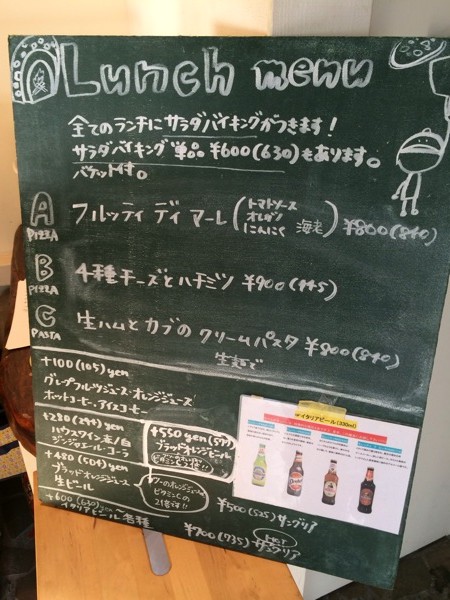 Lunch menu
全てのランチにサラダバイキングがつきます！
サラダバイキング単品 ¥600(630)もあります。
バゲット付。
A PIZZA
フルッティ ディ マーレ (トマトソース オレガノ にんにく 海老) ¥800(840)
B PIZZA
4種チーズとハチミツ ¥900(945)
C PASTA
生ハムとカブのクリームパスタ ¥800(840)
生麺で
+100(105)yen
グレープフルーツジュース・オレンジジュース
ホットコーヒー、アイスコーヒー
+280(294)yen
ハウスワイン 赤/白
ジンジャエール・コーラ
+480(504)yen
ブラッドオレンジジュース
生ビール
+600(630)yen〜
イタリアビール各種
+550yen(577)
ブラッドオレンジビール
ビタミンCの
21倍です!!
¥500(525)サングリア
¥700(735)
サングリア
イタリアビール(330ml)